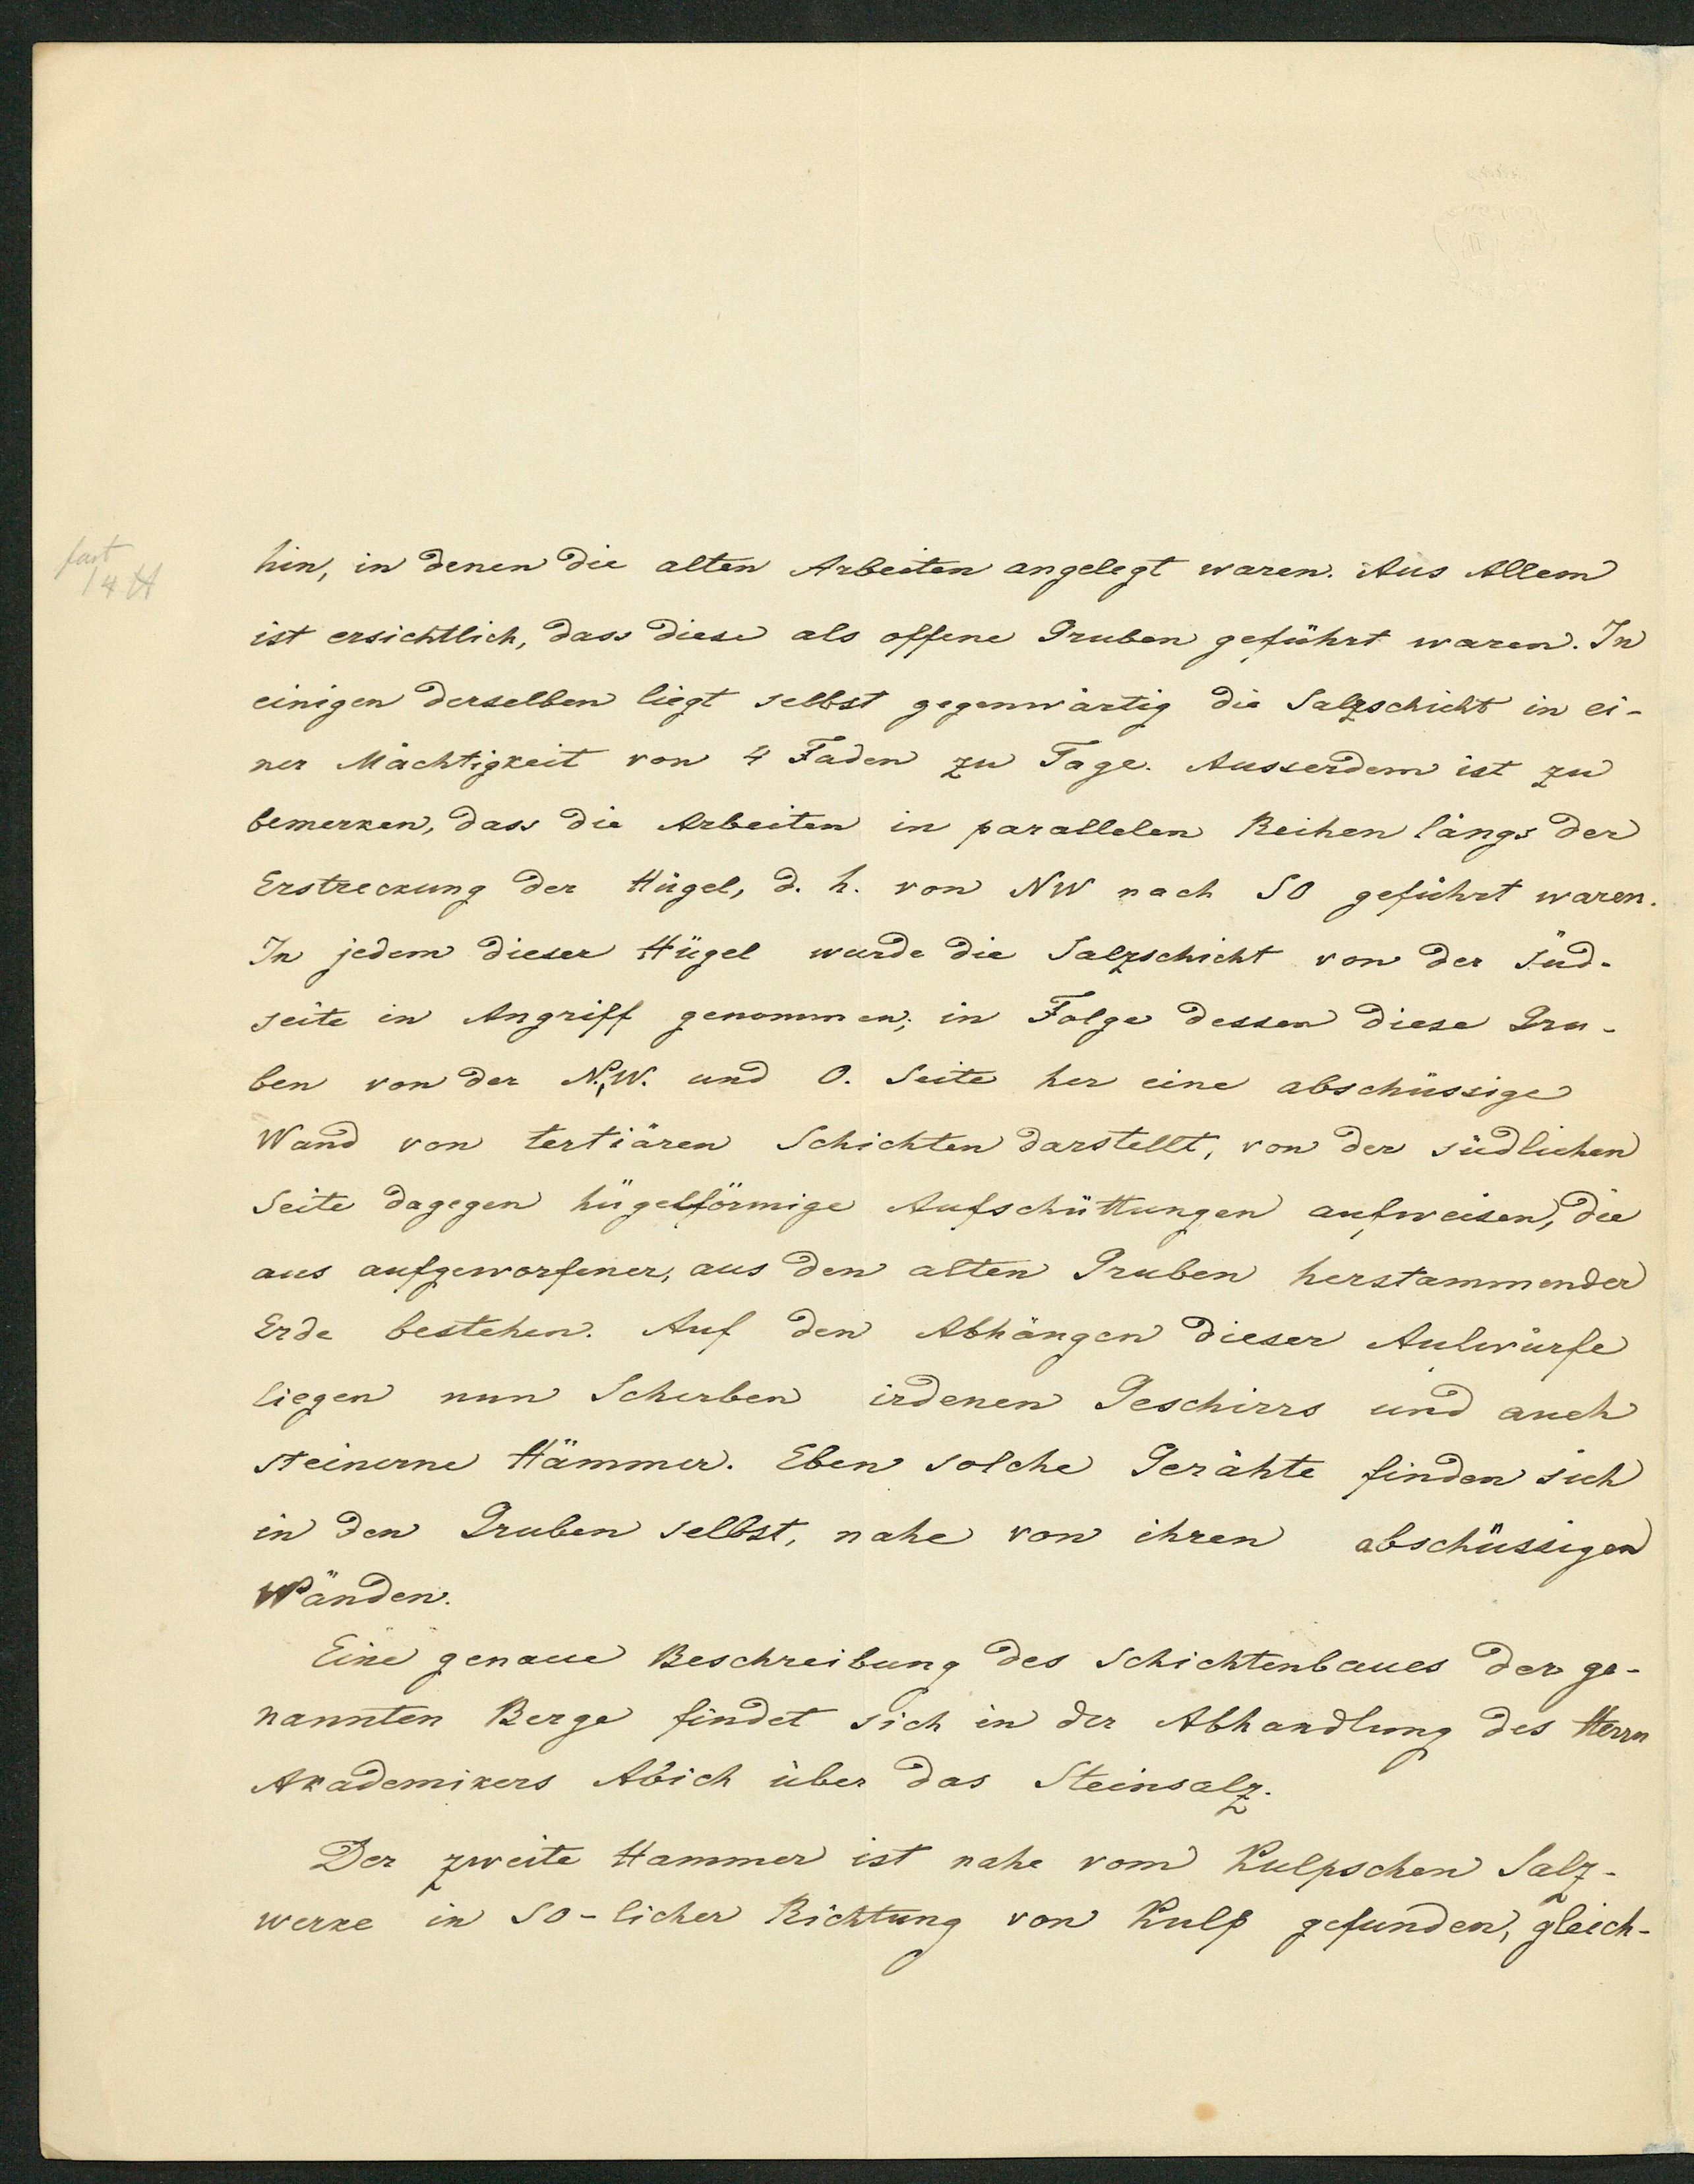 fast
14 ℔
hin, in denen die alten Arbeiten angelegt waren. Aus Allem
ist ersichtlich, dass diese als offene Gruben geführt waren. In
einigen derselben liegt selbst gegenwärtig die Salzschicht in ei-
ner Mächtigkeit von 4 Faden zu Tage. Ausserdem ist zu
bemerken, dass die Arbeiten in parallelen Reihen längs der
Erstreckung der Hügel, d. h. von NW nach SO geführt waren.
In jedem dieser Hügel wurde die Salzschicht von der Süd-
seite in Angriff genommen; in Folge dessen diese Gru-
ben von der N., W. und O. Seite her eine abschüssige
Wand von tertiären Schichten darstellt, von der südlichen
Seite dagegen hügelförmige Aufschüttungen aufweisen, die
aus aufgeworfener, aus den alten Gruben herstammender
Erde bestehen. Auf den Abhängen dieser Aulwürfe
liegen nun Scherben irdenen Geschirrs und auch
steinerne Hämmer. Eben solche Gerähte finden sich
in den Gruben selbst, nahe von ihren abschüssigen
Wänden.
Eine genaue Beschreibung des Schichtenbaues der ge-
nannten Berge findet sich in der Abhandlung des Herrn
Akademikers Abich über das Steinsalz.
Der zweite Hammer ist nahe vom Kulpschen Salz-
werke in SO-licher Richtung von Kulp gefunden, gleich-